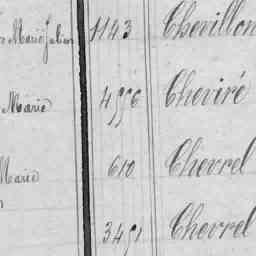 Marie Julien 1143 Chevillon
Marie 4996 Cheviré
Marie 610 Chevrel
3491 Chevrel